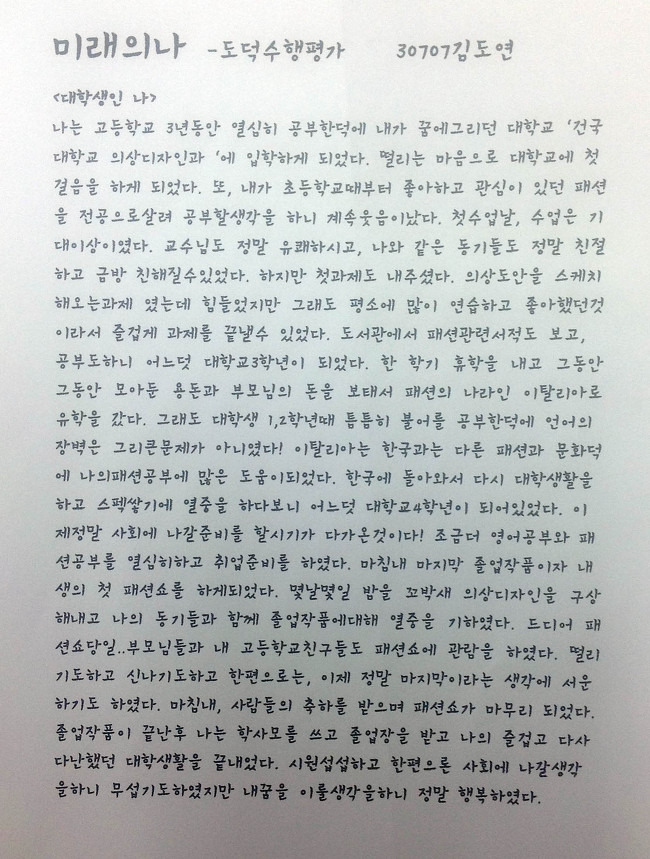 미래의나 -도덕수행평가 30707김도연
<대학생인 나>
나는 고등학교 3년동안 열심히 공부한덕에 내가 꿈에그리던 대학교 '건국
대학교 의상디자인과 '에 입학하게 되었다. 떨리는 마음으로 대학교에 첫
걸음을 하게 되었다. 또, 내가 초등학교때부터 좋아하고 관심이 있던 패션
을 전공으로살려 공부할생각을 하니 계속웃음이났다. 첫수업날, 수업은 기
대이상이였다. 교수님도 정말 유쾌하시고, 나와 같은 동기들도 정말 친절
하고 금방 친해질수있었다. 하지만 첫과제도 내주셨다. 의상도안을 스케치
해오는과제 였는데 힘들었지만 그래도 평소에 많이 연습하고 좋아했던것
이라서 즐겁게 과제를 끝낼수 있었다. 도서관에서 패션관련서적도 보고,
공부도하니 어느덧 대학교3학년이 되었다. 한 학기 휴학을 내고 그동안
그동안 모아둔 용돈과 부모님의 돈을 보태서 패션의 나라인 이탈리아로
유학을 갔다. 그래도 대학생 1,2학년때 틈틈히 불어를 공부한덕에 언어의
장벽은 그리큰문제가 아니였다! 이탈리아는 한국과는 다른 패션과 문화덕
에 나의패션공부에 많은 도움이되었다. 한국에 돌아와서 다시 대학생활을
하고 스펙쌓기에 열중을 하다보니 어느덧 대학교4학년이 되어있었다. 이
제정말 사회에 나갈준비를 할시기가 다가온것이다! 조금더 영어공부와 패
션공부를 열심히하고 취업준비를 하였다. 마침내 마지막 졸업작품이자 내
생의 첫 패션쇼를 하게되었다. 몇날몇일 밤을 꼬박새 의상디자인을 구상
해내고 나의 동기들과 함께 졸업작품에대해 열중을 기하였다. 드디어 패
션쇼당일..부모님들과 내 고등학교친구들도 패션쇼에 관람을 하였다. 떨리
기도하고 신나기도하고 한편으로는, 이제 정말 마지막이라는 생각에 서운
하기도 하였다. 마침내, 사람들의 축하를 받으며 패션쇼가 마무리 되었다.
졸업작품이 끝난후 나는 학사모를 쓰고 졸업장을 받고 나의 즐겁고 다사
다난했던 대학생활을 끝내었다. 시원섭섭하고 한편으론 사회에 나갈생각
을하니 무섭기도하였지만 내꿈을 이룰생각을하니 정말 행복하였다.